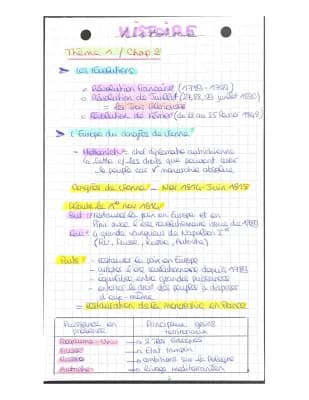 HISTOIRE
Thème 1 / Chap 2
➤ Les révolutions
o Révolution française (1789 - 1799)
o Révolution de Juillet (27, 28, 29 juillet 1830)
= les Trois Glorieuses
o Révolution de février (du 22 au 25 février 1848)
➤ L'Europe du congrès de Vienne
- Metternich : chef diplomate autrichienne
la lutte c/ les droits que peuvent avoir
le peuple car monarchie absolue
Congrès de Vienne - Nov 1814 - Juin 1815
Débute le 1er nov 1814
But : restaurer la paix en Europe et en
finir avec l'ère révolutionnaire issue de 1789
Qui : 4 grands vainqueurs de Napoléon Ier
(RU, Prusse, Russie, Autriche)
Buts : - restaurer la paix en Europe
- arrêter l'ère révolutionnaire depuis 1789
- équilibre entre grandes puissances
- enterrer le droit des peuples à disposer
d'eux-même
= Restauration de la monarchie en France
Puissance en présence
Principaux gains territoriaux
Royaume-Uni
→ 2 îles grecques
Prusse
→ Etat tampon
Russie
→ ambitions sur la Pologne
Autriche
→ Rivage méditerranéen